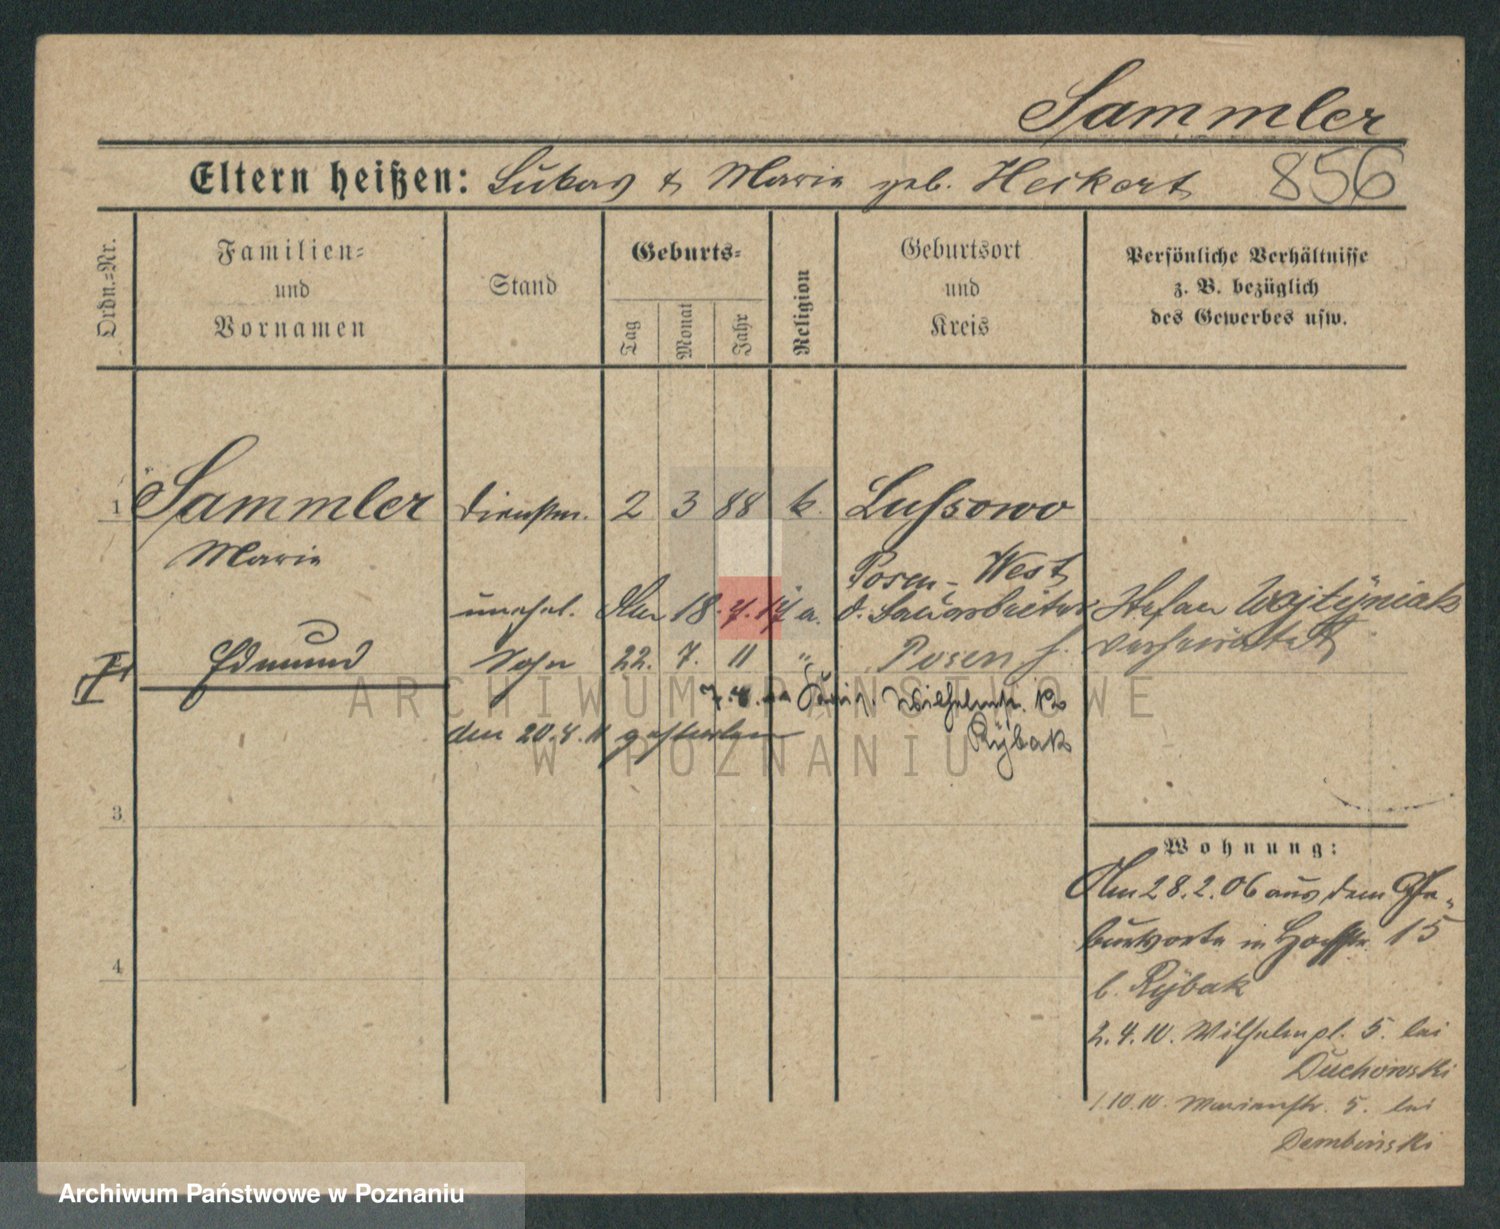 Sammler
Eltern heißen: Lukas & Marie geb. Heikert 856
Ordn.=Nr.
Familien=
und
Vornamen
Stand
Geburts=
Tag
Monat
Jahr
Religion
Geburtsort
und
Kreis
Persönliche Verhältnisse
z. B. bezüglich
des Gewerbes usw.
1 Sammler Dienstm. 2 3 88 k. Lussowo
Marie Posen-West
unehel. Am 18. 7. 17 a. d. Stefan Wojtÿniak
verheiratet
Edmund Sohn 22. 7. 11 " Posen
Wilhelmstr.
den 20.8.11 gestorben Rÿbak
3
4
Wohnung:
Am 28.2.06 aus dem Ge=
burtsorte in 15
b. Rÿbak
2.4.10. Wilhelmpl. 5. bei
Duchowski
1.10.10. Marienstr. 5. bei
Dembinski
ARCHIWUM PAŃSTWOWE
W POZNANIU
Archiwum Państwowe w Poznaniu